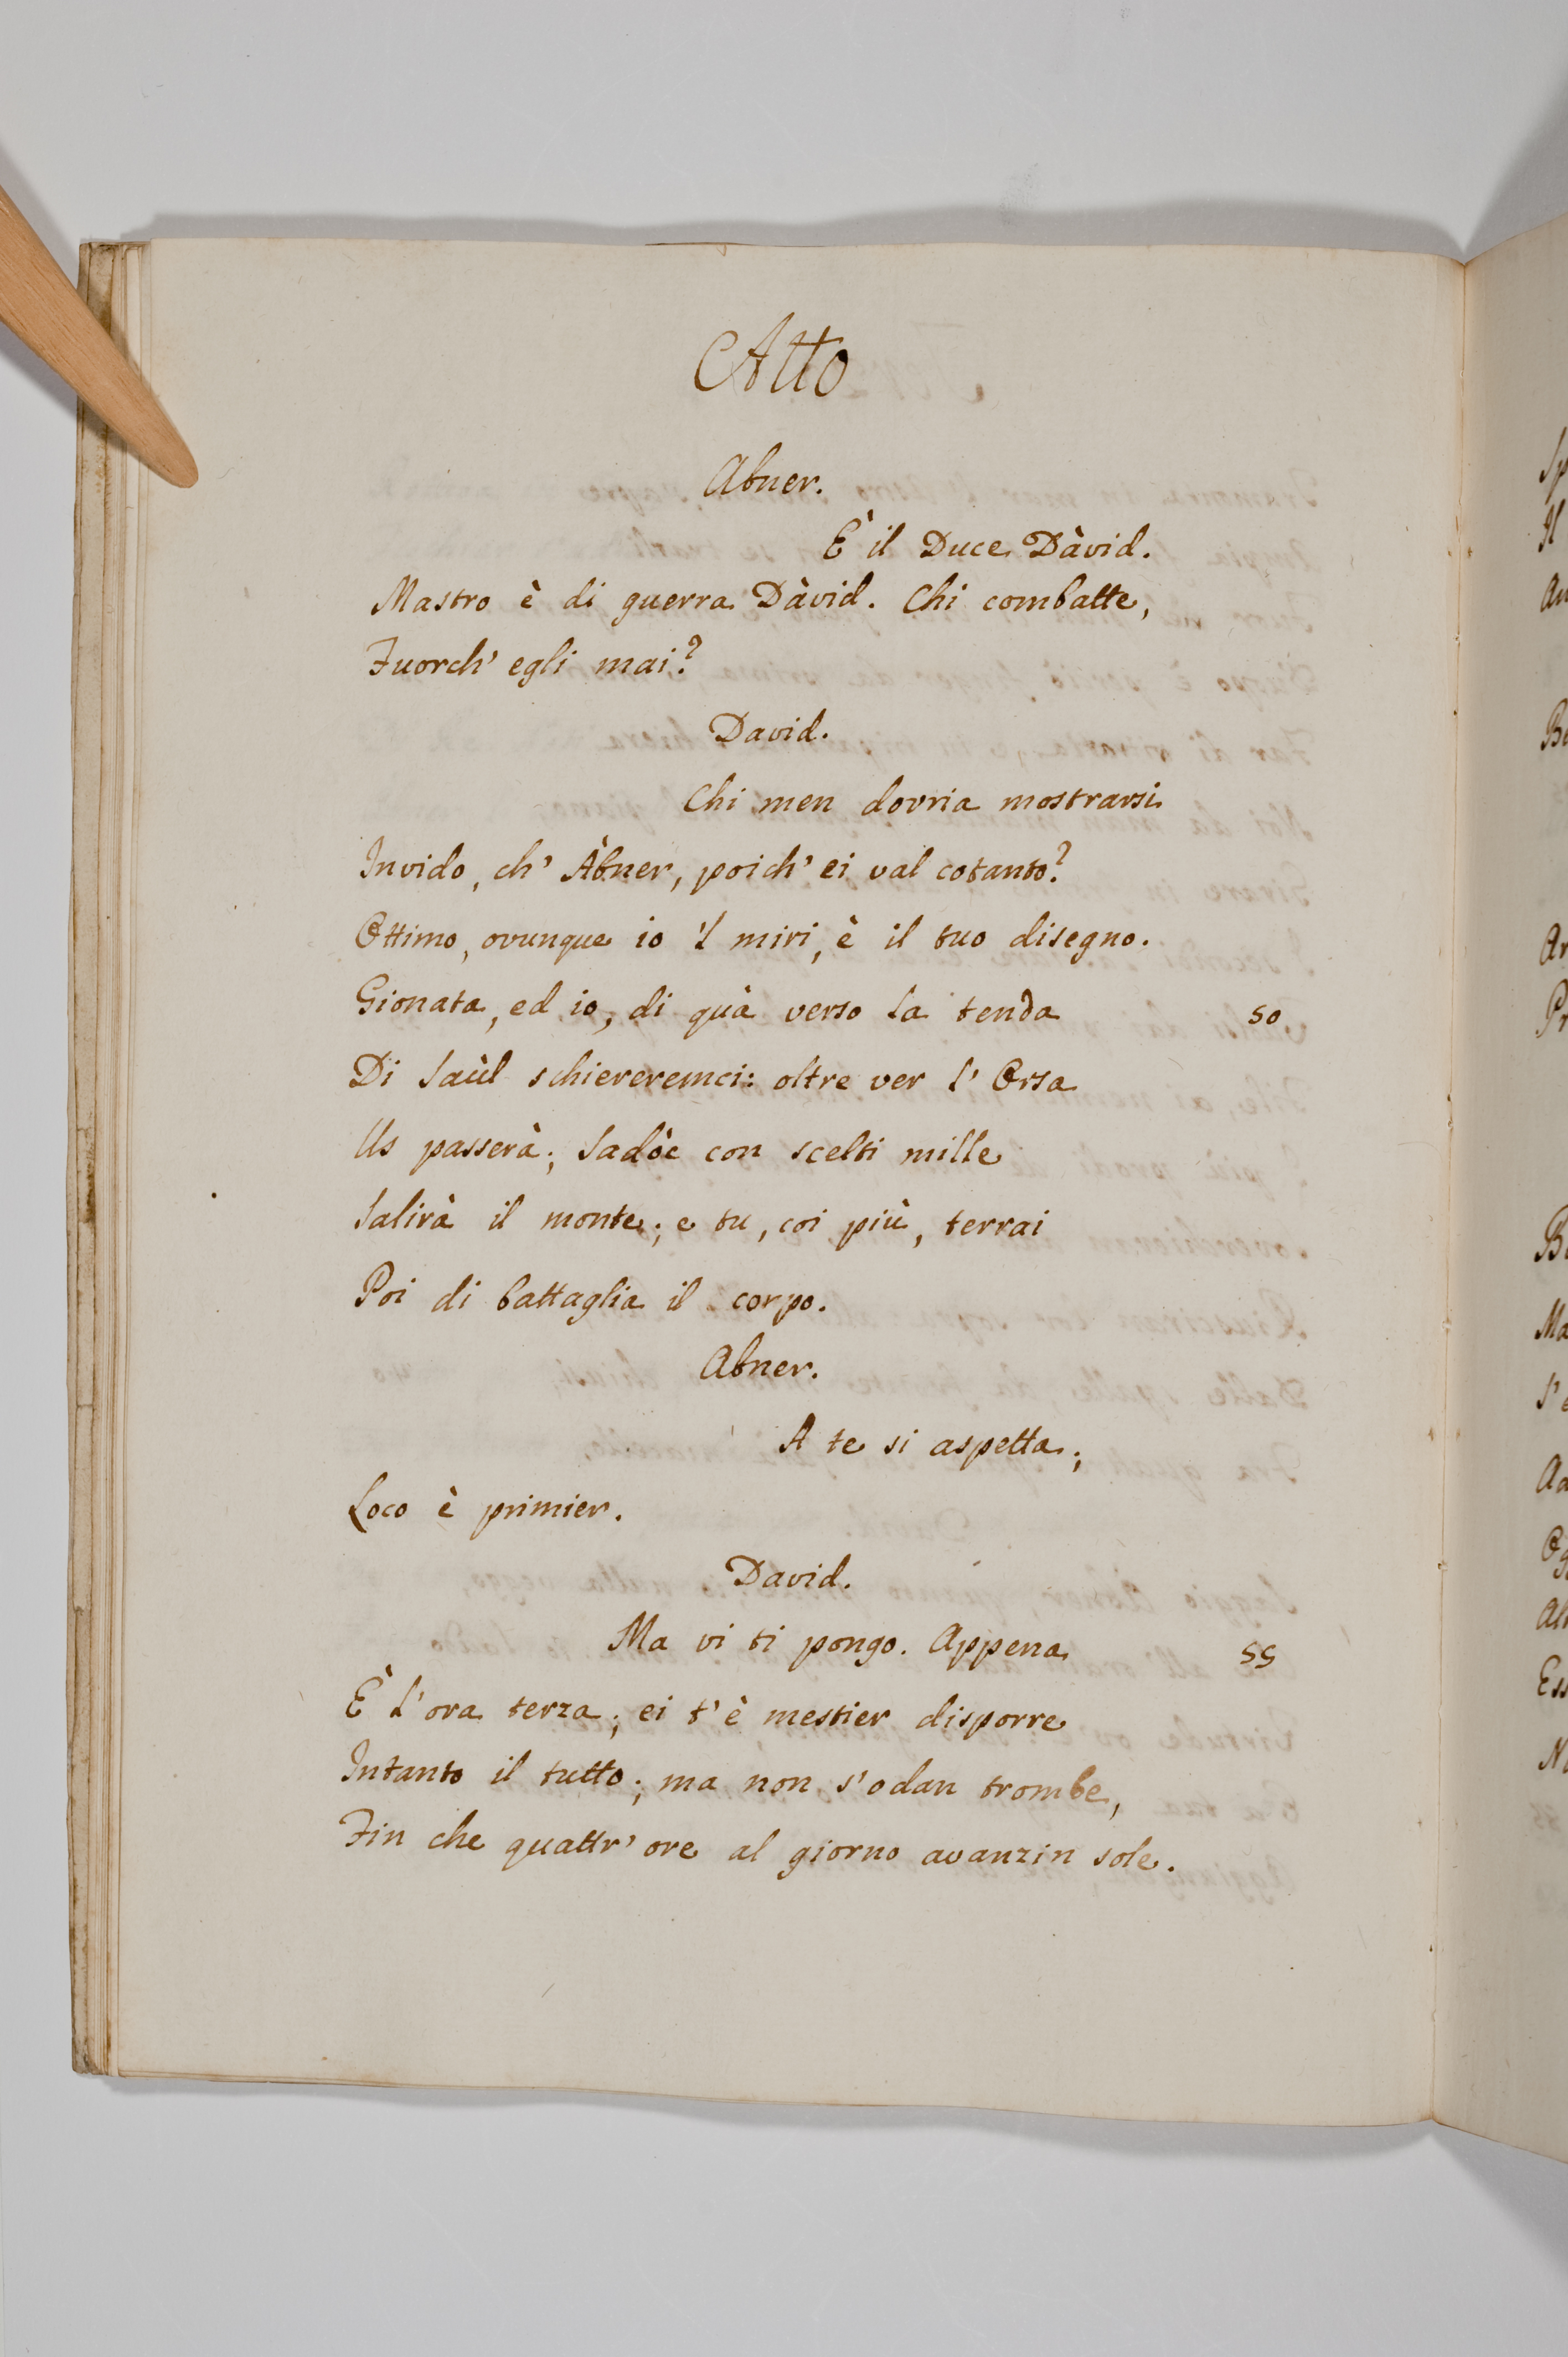 Atto
Abner.
È il Duce Dàvid.
Mastro è di guerra Dàvid. Chi combatte,
Fuorch' egli mai?
David.
Chi men dovria mostrarsi
Invido, ch' Àbner, poich' ei val cotanto?
Ottimo, ovunque io 'l miri, è il tuo disegno.
Gionata, ed io, di quà verso la tenda 50
Di Saùl schiereremci: oltre ver l' Orsa
Us passerà; Sadòc con scelti mille
Salirà il monte; e tu, coi più, terrai
Poi di battaglia il corpo.
Abner.
A te si aspetta;
Loco è primier.
David.
Ma vi ti pongo. Appena 55
È l'ora terza; ei t'è mestier disporre
Intanto il tutto; ma non s'odan trombe,
Fin che quattr' ore al giorno avanzin sole.